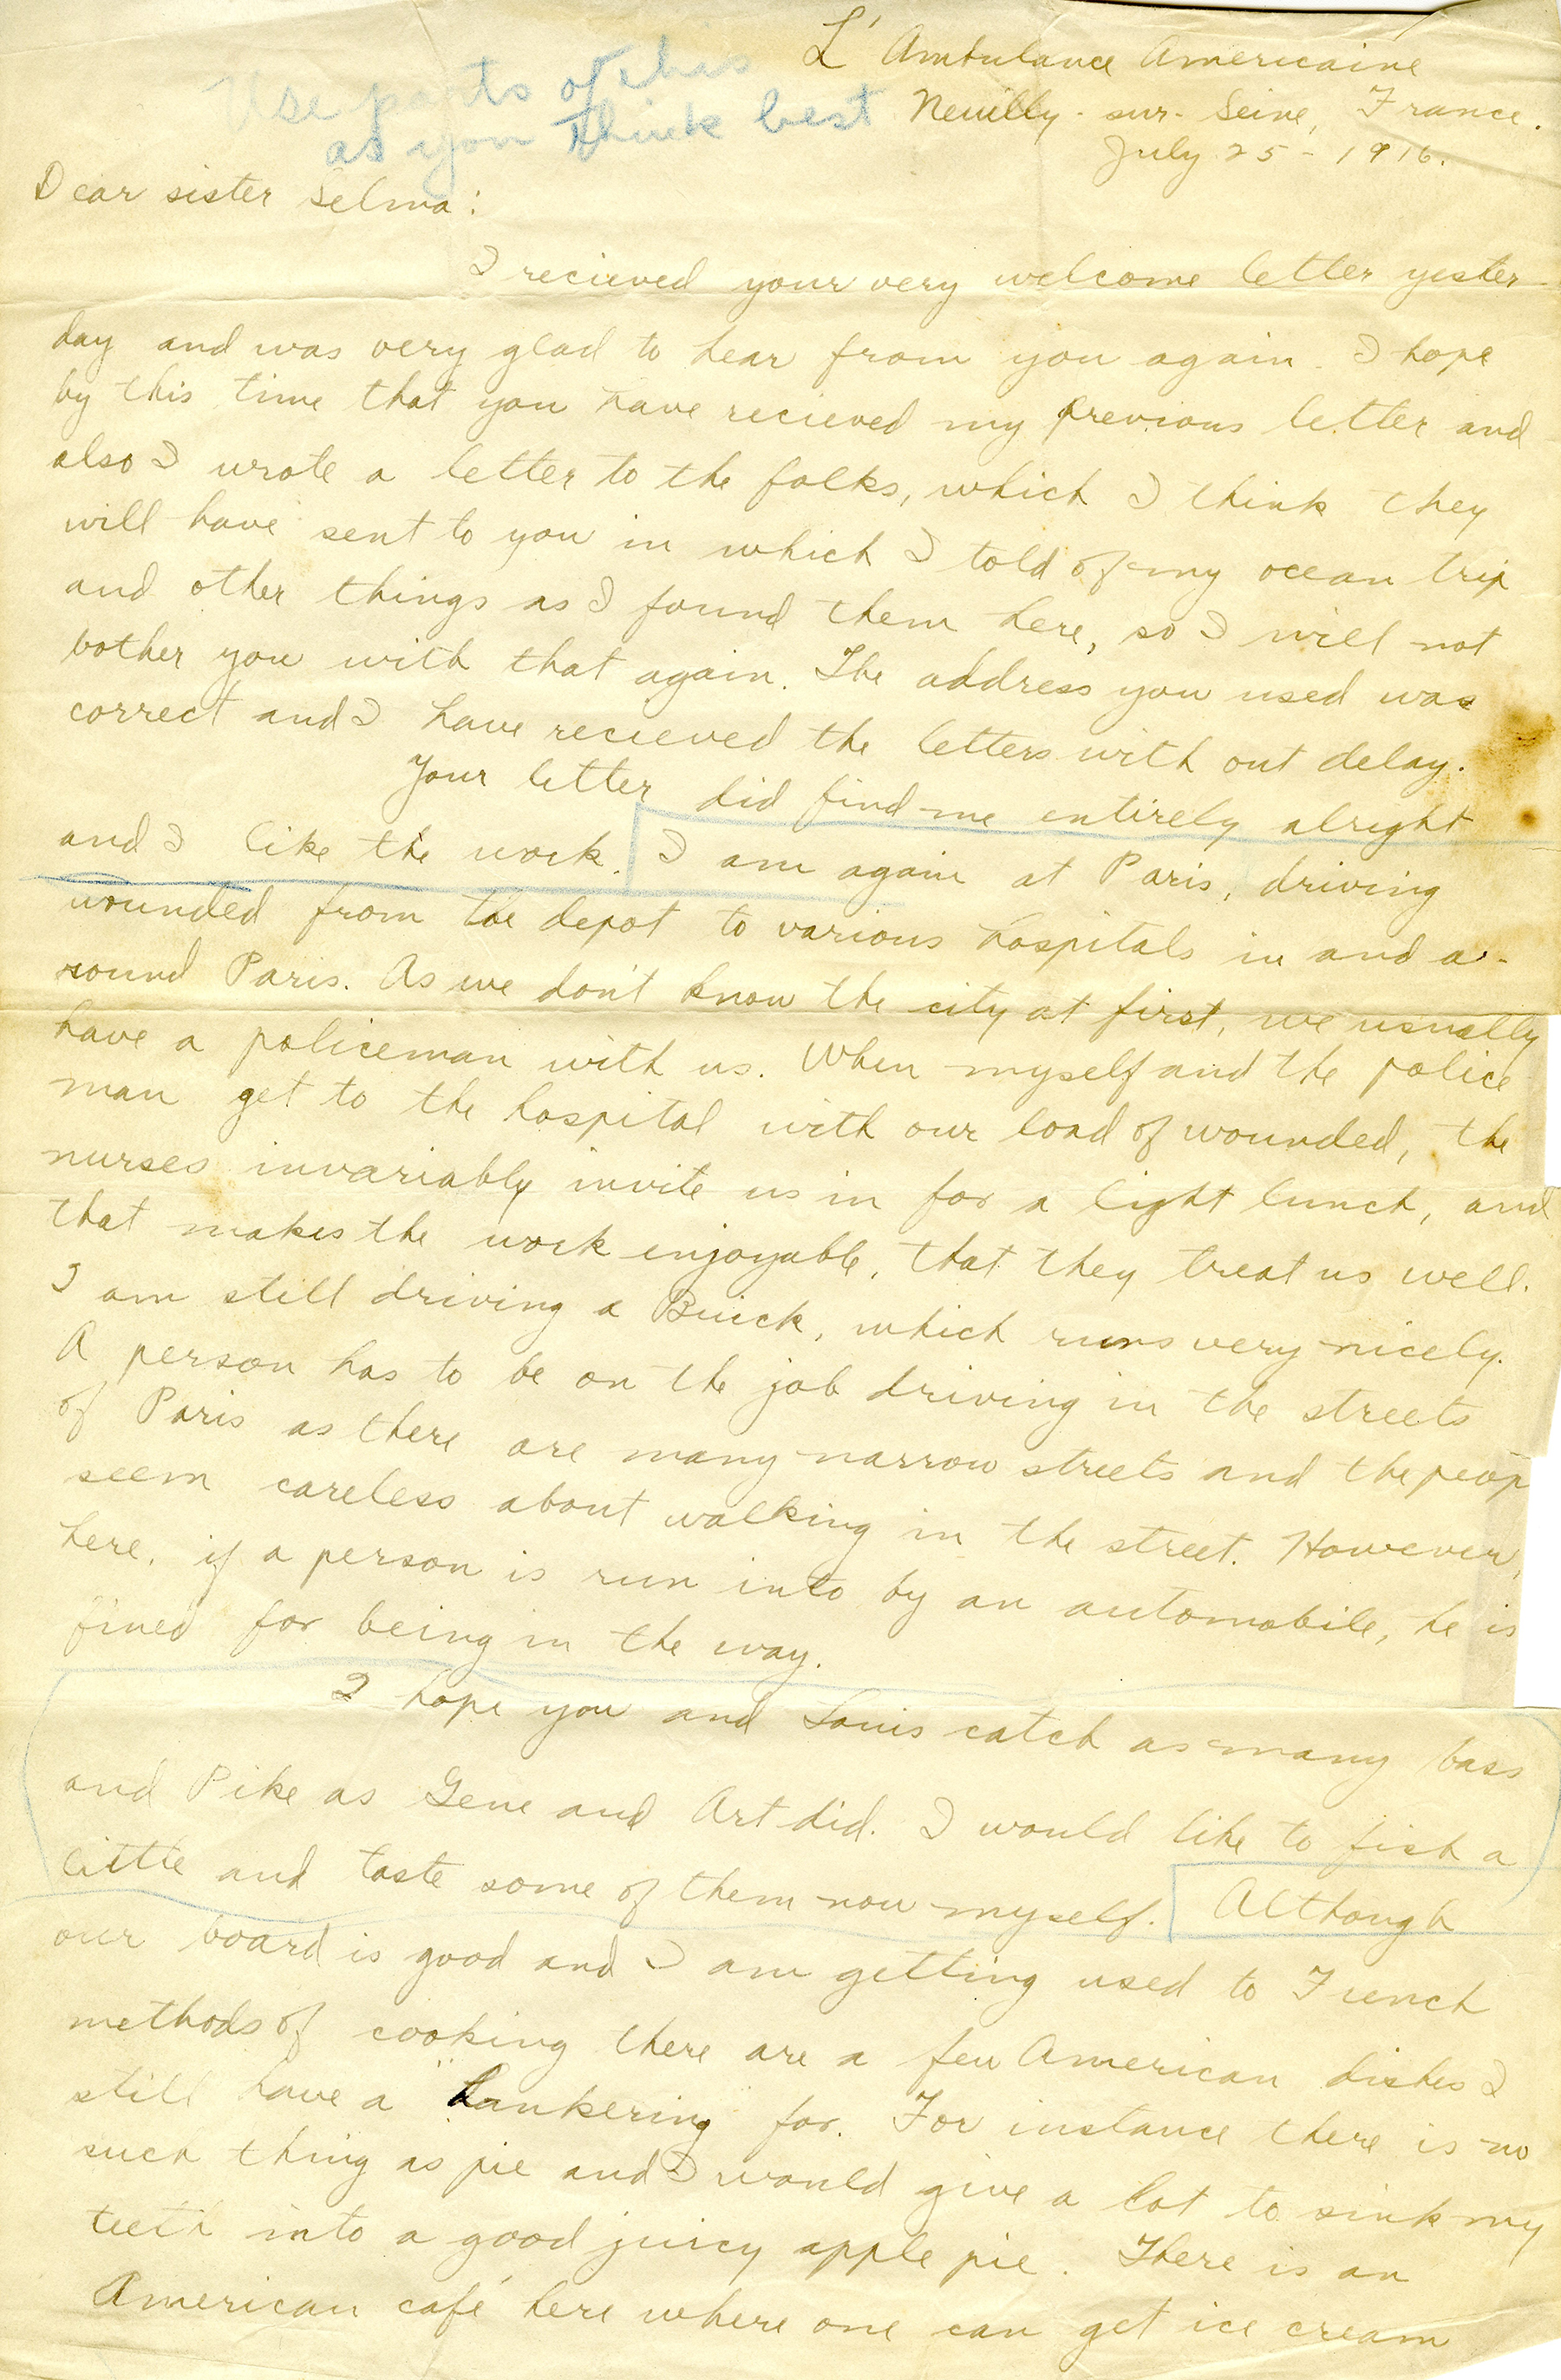 L' Ambulance Americaine
Use parts of this
as you think best
Neuilly-sur-Seine, France.
July 25-1916.
Dear sister Selma:
I recieved your very welcome letter yester-
day and was very glad to hear from you again. I hope
by this time that you have recieved my previous letter and
also I wrote a letter to the folks, which I think they
will have sent to you in which I told of my ocean trip
and other things as I found them here, so I will not
bother you with that again. The address you used was
correct and I have recieved the letters with out delay.
Your letter did find me entirely alright
and I like the work. I am again at Paris, driving
wounded from the depot to various hospitals in and a-
round Paris. As we don't know the city at first, we usually
have a policeman with us. When myself and the police
man get to the hospital with our load of wounded, the
nurses invariably invite us in for a light lunch, and
that makes the work enjoyable, that they treat us well.
I am still driving a Buick, which runs very nicely.
A person has to be on the job driving in the streets
of Paris as there are many narrow streets and the peop
seem careless about walking in the street. However,
here, if a person is run into by an automobile, he is
fined for being in the way.
I hope you and Louis catch as many bass
and Pike as Gene and Art did. I would like to fish a
little and taste some of them now myself. Although
our board is good and I am getting used to French
methods of cooking there are a few American dishes I
still have a "hankering for. For instance there is no
such thing as pie and I would give a lot to sink my
teeth into a good juicy apple pie. There is an
American café here where one can get ice cream